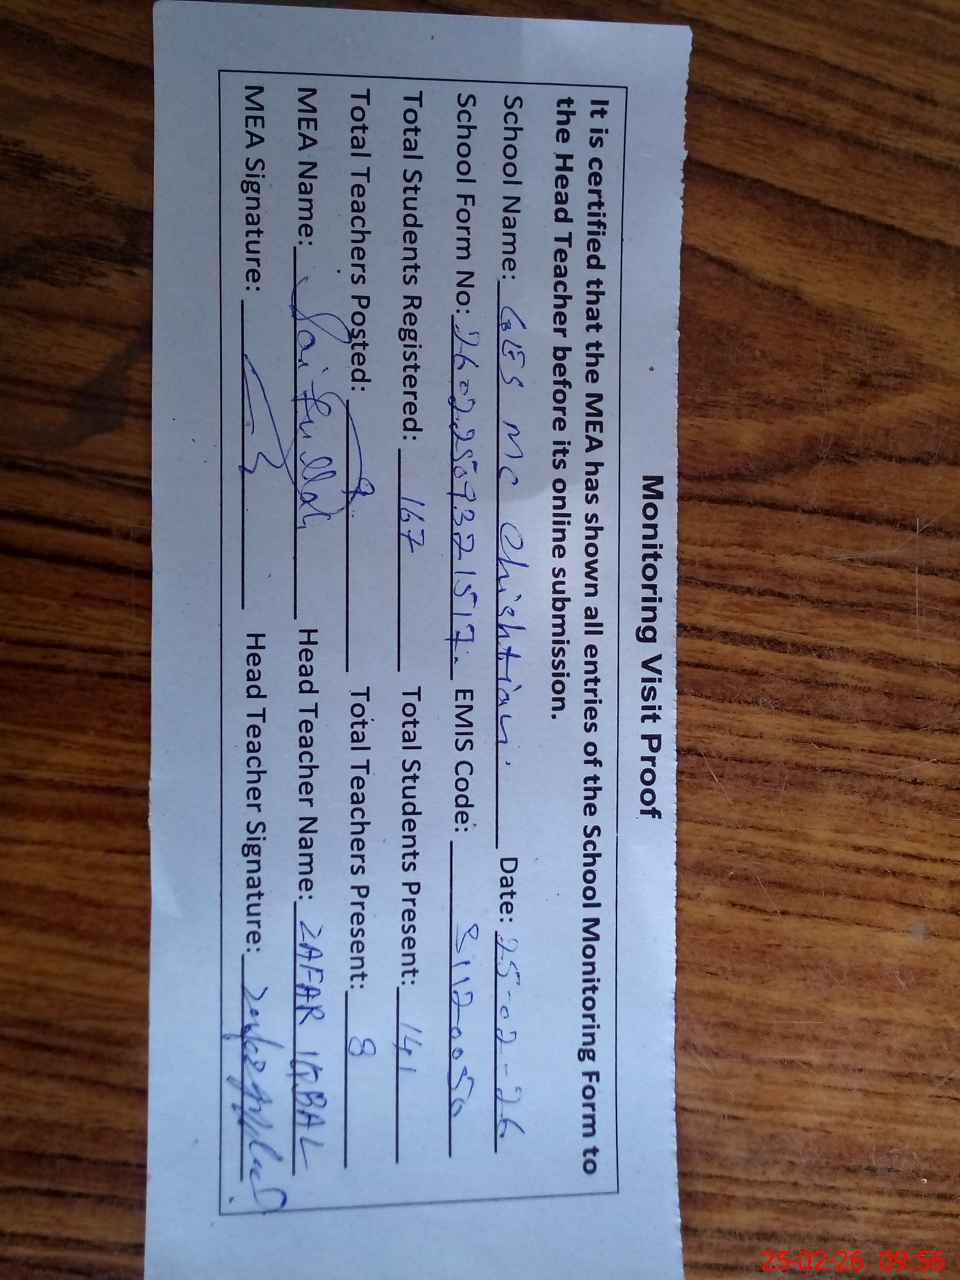 Monitoring Visit Proof
It is certified that the MEA has shown all entries of the School Monitoring Form to
the Head Teacher before its online submission.
School Name: GES MC Chishtian Date: 25-02-26
School Form No: EMIS Code:
Total Students Registered: 167 Total Students Present: 141
Total Teachers Posted: 9 Total Teachers Present: 8
MEA Name: Saifullah Head Teacher Name: ZAFAR IQBAL
MEA Signature: Head Teacher Signature:
25-02-26 09:56